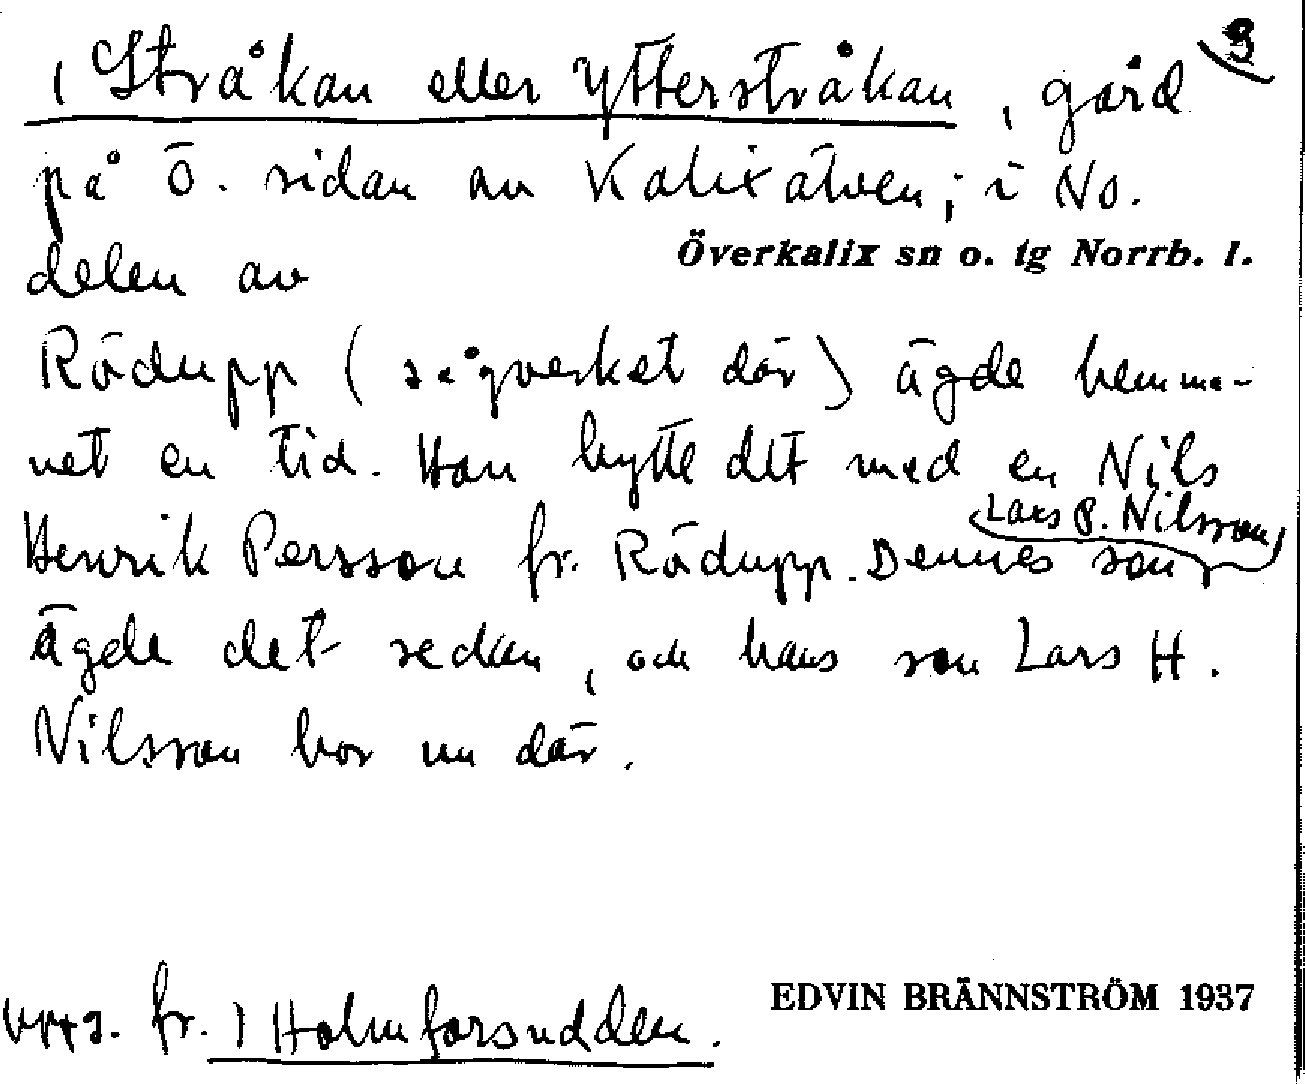 3
1 Stråkan eller Ytterstråkan, gård
på ö. sidan av Kalixälven; i No.
Överkalix sn o. tg Norrb. l.
delen av
Rödupp (sågverket där) ägde hemma-
net en tid. Han bytte det med en Nils
Lars P. Nilsson
Henrik Persson fr. Rödupp. Dennes son
ägde det sedan, och hans son Lars H.
Nilsson bor nu där.
EDVIN BRÄNNSTRÖM 1937
fr. 1 Holmforsudden.